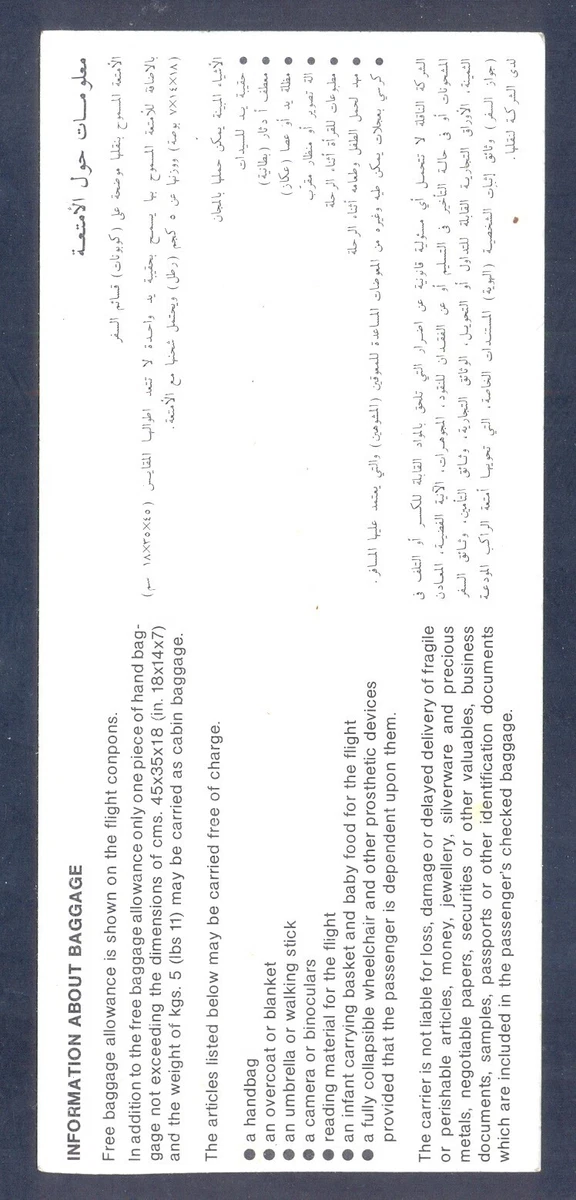 INFORMATION ABOUT BAGGAGE
Free baggage allowance is shown on the flight conpons.
In addition to the free baggage allowance only one piece of hand bag-
gage not exceeding the dimensions of cms. 45x35x18 (in. 18x14x7)
and the weight of kgs. 5 (lbs 11) may be carried as cabin baggage.
The articles listed below may be carried free of charge.
● a handbag
● an overcoat or blanket
● an umbrella or walking stick
● a camera or binoculars
● reading material for the flight
● an infant carrying basket and baby food for the flight
● a fully collapsible wheelchair and other prosthetic devices
provided that the passenger is dependent upon them.
The carrier is not liable for loss, damage or delayed delivery of fragile
or perishable articles, money, jewellery, silverware and precious
metals, negotiable papers, securities or other valuables, business
documents, samples, passports or other identification documents
which are included in the passenger's checked baggage.
معلومات حول الأمتعة
الأمتعة المسموح بنقلها موضحة على (كوبونات) قسائم السفر
بالاضافة للأمتعة المسموح بها يسمح بحقيبة يد واحدة لا تتعد اطوالها المقاييس (٤٥×٣٥×١٨ سم)
(١٨×١٤×٧ بوصة) ووزنها عن ٥ كجم (رطل) ويحتمل شحنها مع الأمتعة.
الأشياء المبينة يمكن حملها بالمجان
● حقيبة يد للسيدات
● معطف أ دثار (بطانية)
● مظلة يد أو عصا (عكاز)
● الة تصوير أو منظار مقرب
● مطبوعات للقرأة أثناء الرحلة
● مهد لحمل الطفل وطعامه أثناء الرحلة
● كرسي بعجلات يمكن طيه وغيره من المعوضات المساعدة للمعوقين (المشوهين) والتي يعتمد عليها المسافر.
الشركة الناقلة لا تتحمل أي مسئولية قانونية عن اضرار التي تلحق بالمواد القابلة للكسر أو التلف في
المشحونات أو في حالة التأخير في التسليم أو عن الفقدان للنقود، المجوهرات، الآنية الفضية، المعادن
الثمينة، الأوراق التجارية القابلة للتداول أو التحويل، الوثائق التجارية، وثائق التأمين، وثائق السفر
(جواز السفر) وثائق إثبات الشخصية (الهوية) المستندات الخاصة، التي تحويها أمتعة الراكب المودعة
لدى الشركة لنقلها.